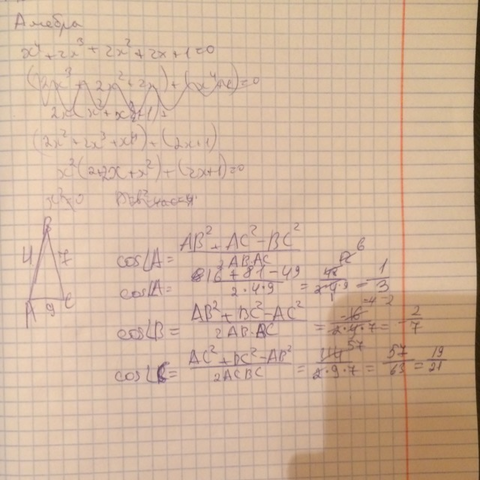 Алгебра
x⁴+2x³+2x²+2x+1=0
(2x³+2x²+2x)+(x⁴+1)=0
(2x²+2x³+x⁴)+(2x+1)
x²(2+2x+x²)+(2x+1)=0
B
4 7
A 9 C
cos∠A = (AB²+AC²-BC²)/(2AB·AC)
cos∠A = (16+81-49)/(2·4·9) = 1/3
cos∠B = (AB²+BC²-AC²)/(2AB·BC) = -16/(2·4·7) = -2/7
cos∠C = (AC²+BC²-AB²)/(2AC·BC) = 114/(2·9·7) = 57/63 = 19/21